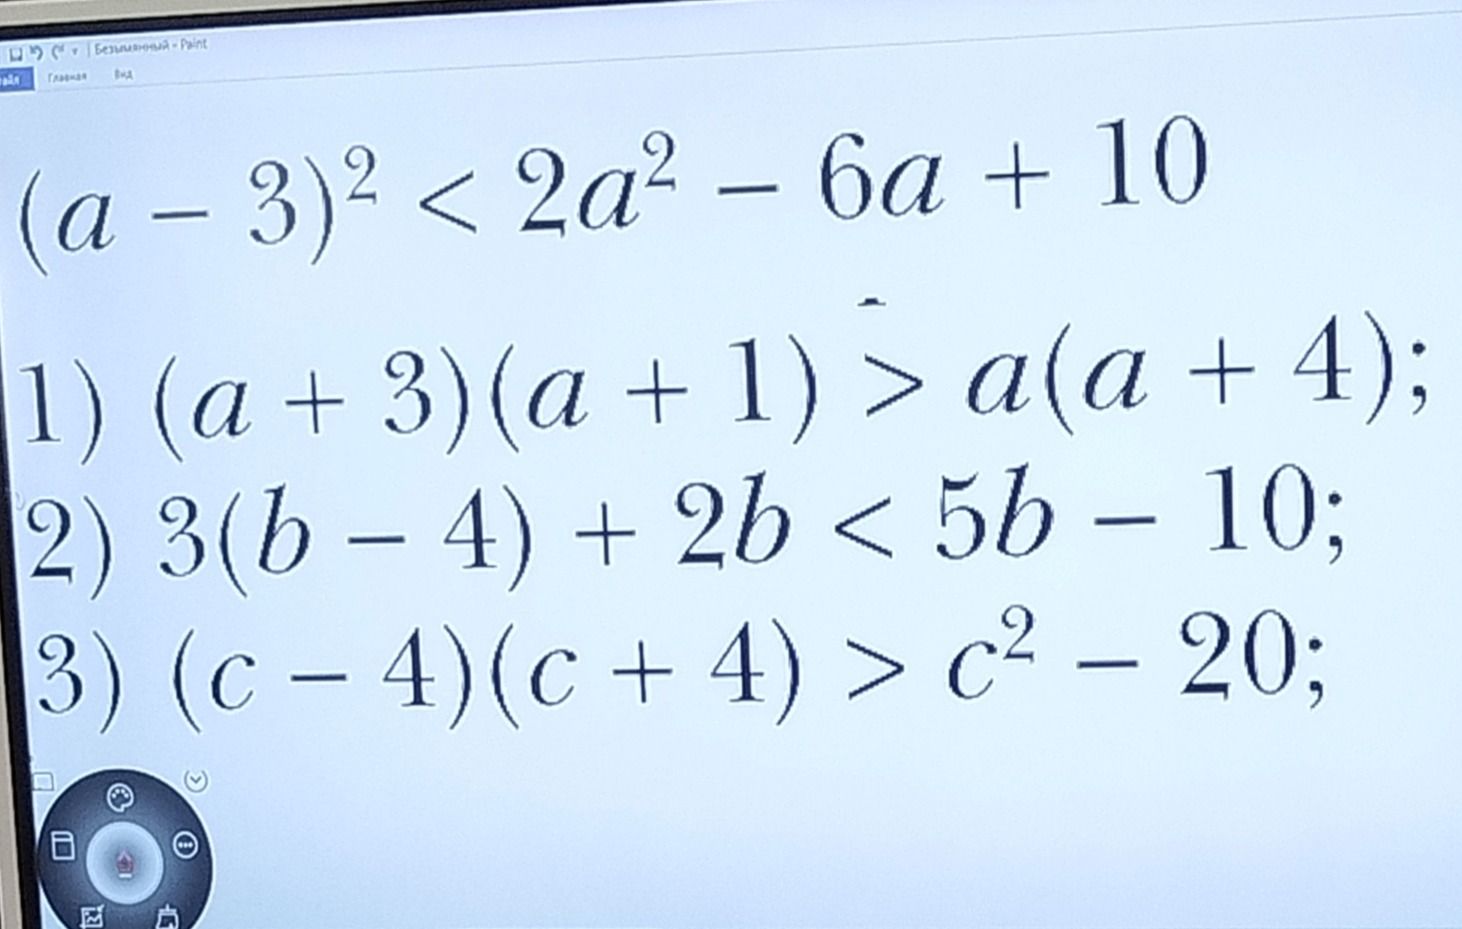 Безымянный - Paint
Файл Главная Вид
(a − 3)² < 2a² − 6a + 10
1) (a + 3)(a + 1) > a(a + 4);
2) 3(b − 4) + 2b < 5b − 10;
3) (c − 4)(c + 4) > c² − 20;